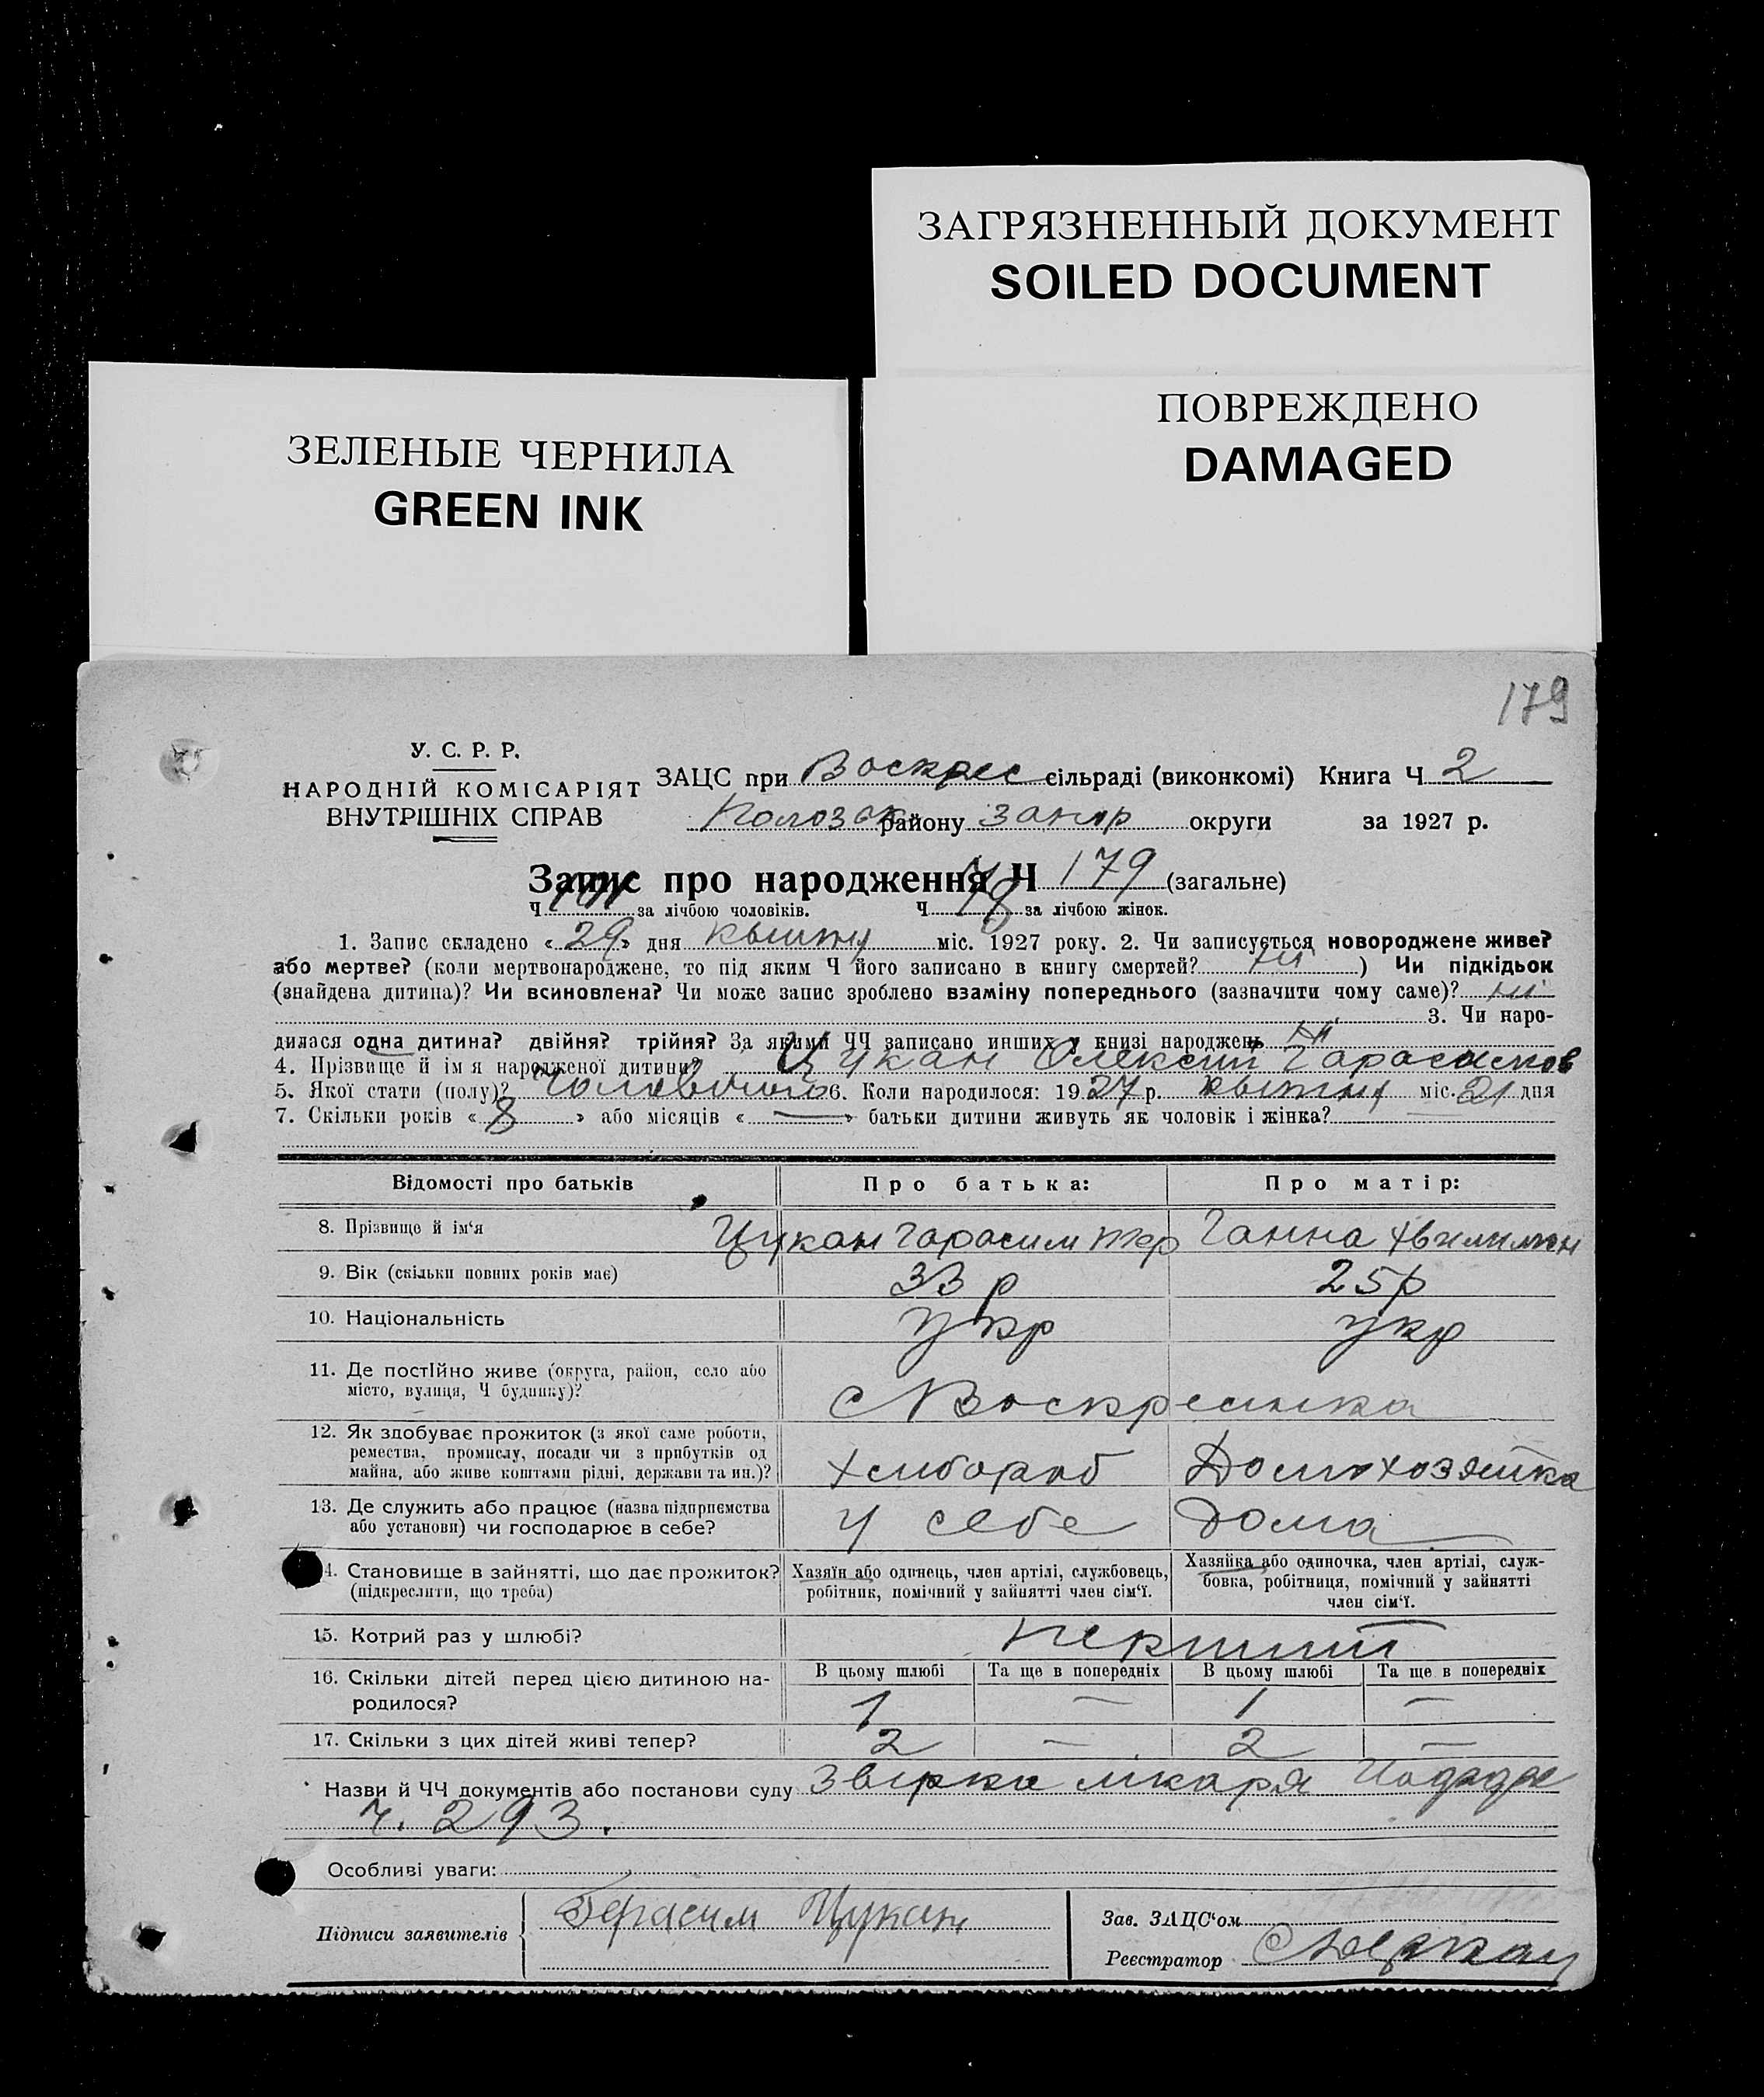 ЗАГРЯЗНЕННЫЙ ДОКУМЕНТ
SOILED DOCUMENT
ПОВРЕЖДЕНО
DAMAGED
ЗЕЛЕНЫЕ ЧЕРНИЛА
GREEN INK
179
У. С. Р. Р.
НАРОДНІЙ КОМІСАРІЯТ
ВНУТРІШНІХ СПРАВ
ЗАЦС при Воскрес сільраді (виконкомі) Книга Ч 2
району запор округи за 1927 р.
Запис про народження Ч 179 (загальне)
Ч за лічбою чоловіків. Ч 78 за лічбою жінок.
1. Запис складено « 29 » дня квітня міс. 1927 року. 2. Чи записується новороджене живе?
або мертве? (коли мертвонароджене, то під яким Ч його записано в книгу смертей? ні ) Чи підкідьок
(знайдена дитина)? Чи всиновлена? Чи може запис зроблено взаміну попереднього (зазначити чому саме)? ні
3. Чи наро-
дилася одна дитина? двійня? трійня? За якими ЧЧ записано инших у книзі народжень ні
4. Прізвище й ім'я народженої дитини? Цукан Олексій Гарасимов
5. Якої стати (полу)? Чоловічого 6. Коли народилося: 1927 р. квітня міс. 21 дня
7. Скільки років « 8 » або місяців « — » батьки дитини живуть як чоловік і жінка?
Відомості про батьків Про батька: Про матір:
8. Прізвище й ім'я Цукан Гарасим Ганна
9. Вік (скільки повних років має) 33 р 25 р
10. Національність укр укр
11. Де постійно живе (округа, район, село або
місто, вулиця, Ч будинку)? с Воскресинка
12. Як здобуває прожиток (з якої саме роботи,
ремества, промислу, посади чи з прибутків од
майна, або живе коштами рідні, держави та ин.)? Хлибороб Домохозяйка
13. Де служить або працює (назва підприємства
або установи) чи господарює в себе? У себе Дома
14. Становище в зайнятті, що дає прожиток?
(підкреслити, що треба)
Хазяїн або одинець, член артілі, службовець,
робітник, помічний у зайнятті член сім'ї.
Хазяйка або одиночка, член артілі, служ-
бовка, робітниця, помічний у зайнятті
член сім'ї.
15. Котрий раз у шлюбі? перший
16. Скільки дітей перед цією дитиною на-
родилося?
В цьому шлюбі Та ще в попередніх В цьому шлюбі Та ще в попередніх
1 — 1 —
17. Скільки з цих дітей живі тепер? 2 — 2 —
Назви й ЧЧ документів або постанови суду лікаря
ч. 293.
Особливі уваги:
Підписи заявителів Герасим Цукан
Зав. ЗАЦС'ом
Реєстратор